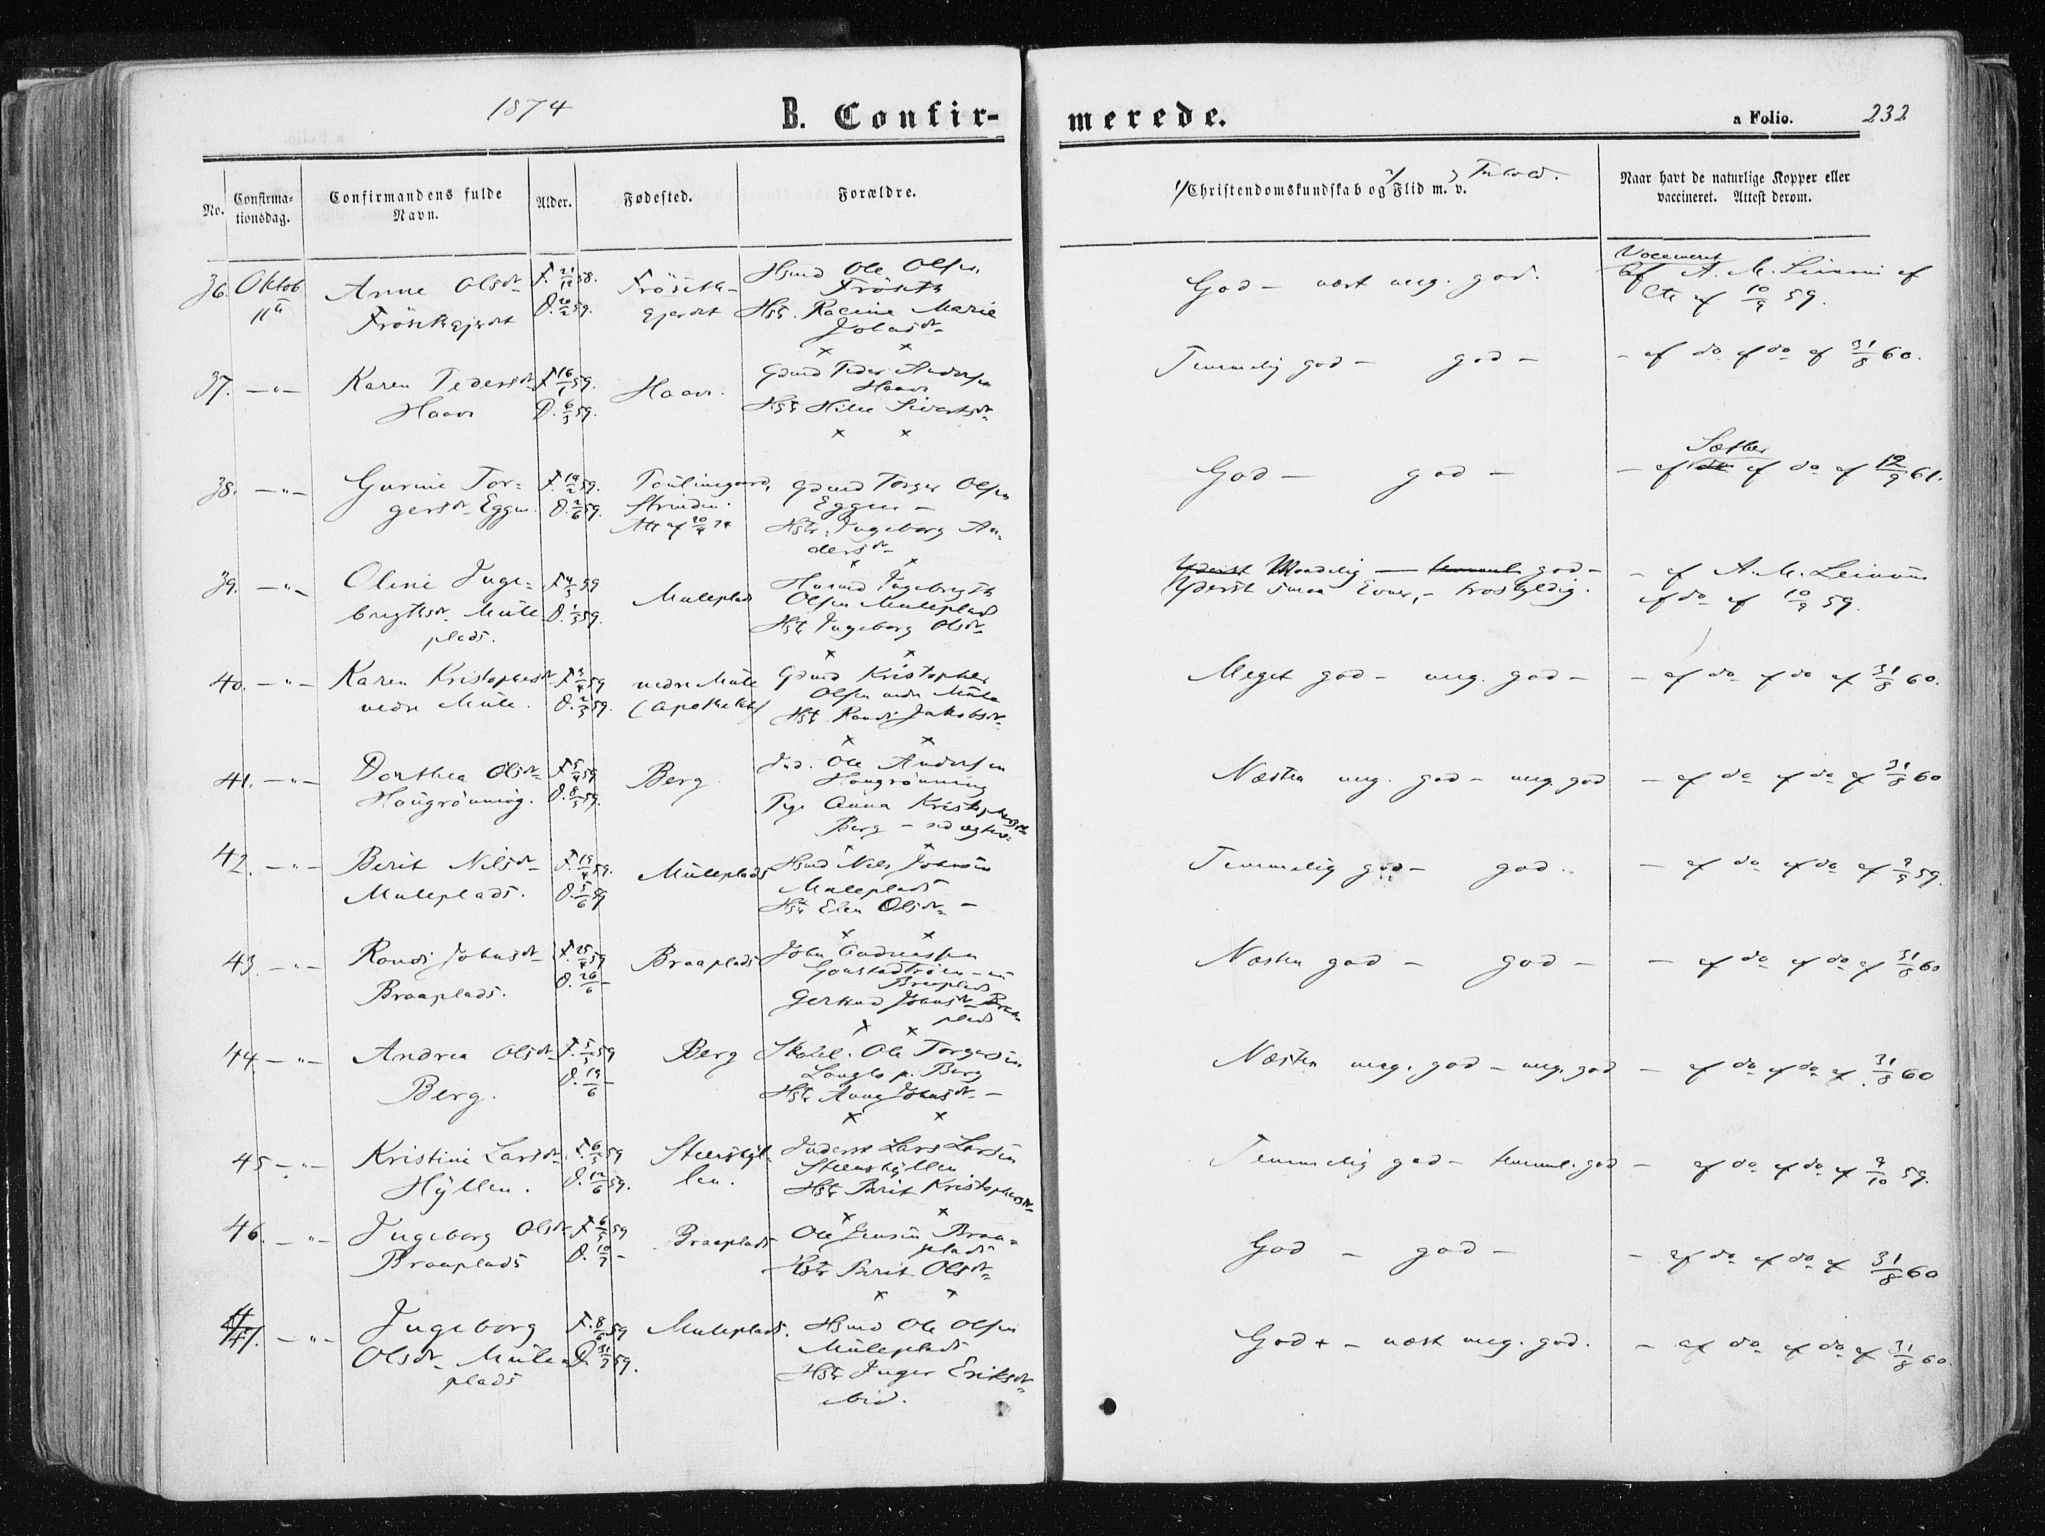 1874
B. Confir-
merede.
a Folio.
232
No.
Confirma-
tionsdag.
Confirmandens fulde
Navn.
Alder.
Fødested.
Forældre.
1/ Christendomskundskab og 2/ Flid m. v.
Naar havt de naturlige Kopper eller
vaccineret. Attest derom.
36. Oktob
11te
Anne Olsdr
F. 21/12 58.
D. 20/2 59.
Husmd Ole Olsen
Fröseth
Hst. Marie
God - næst meg. god.
af A. M.
10/9 59.
37. -"- Karen Pedersdr
Haavr
F. 16/1 59.
D. 6/3 59.
Haavr.
Gdmd Peder Andersen
Haavr
Sivertsdr
Temmelig god - god -
- af do af do af 31/8 60.
38. -"- Gurine Tor-
gersdr Eggen.
F. 14/2 59.
D. 2/6 59.
Strinden.
Att af 20/4 74
Gdmd Torger Olsen
Eggen -
Hstr. Ingeborg An-
dersdr
God - god -
Sæther
- af do af do af 12/9 61.
39. -"- Oline Inge-
brigtsdr Mule
plads.
F. 4/3 59
D. 1/5 59.
Muleplads
Husmd Ingebrigt
Olsen Muleplads
Hstr Ingeborg Olsdr
Maadelig - god -
Yderst smaa Evner, - troskyldig.
- af A. M.
af do af 10/9 59.
40. -"- Karen Kristophersdr
nedre Mule.
F. 3/4 59
D. 2/5 59.
nedre Mule
Gdmd Kristopher
Olsen nedre Mule
Hstr. Randi Jakobsdr
Meget god - meg. god -
- af do af do af 31/8 60.
41. -"- Dorthea Olsdr
Haugrönning.
F. 5/4 59
D. 8/5 59.
Berg
Ole Andersen
Haugrönning
Pige Anna Kristophersdr
Berg -
Næsten meg. god - meg. god
- af do af do af 31/8 60
42. -"- Berit Nilsdr
Muleplads.
F. 19/4 59.
D. 5/6 59
Muleplads
Husmd Nils
Muleplads
Hstr Elen Olsdr -
Temmelig god - god.
- af do af do af 9/9 59.
43. -"- Randi Johnsdr
Braaplads.
F. 25/4 59
D. 26/6 -
Braaplads
John Andreassen
Braaplads
Gertrud Johnsdr Braa
plads
Næsten god - god -
- af do af do af 31/8 60
44 -"- Andrea Olsdr
Berg.
F. 5/5 59
D. 19/6 -
Berg
Ole Torgersen
Langlo p. Berg
Hstr Anna Johnsdr -
Næsten meg. god - meg. god
- af do af do af 31/8 60
45 -"- Kristine Larsdr
Hyllen.
F. 6/5 59
D. 12/6 59.
Steenshyl-
len.
Inderst Lars Larsen
Steenshyllen
Hstr Berit Kristophersdr
Temmelig god - temml. god
- af do af do af 9/10 59.
46. -"- Ingeborg Olsdr
Braaplads
F. 6/5 59
D. 10/7 -
Braaplads
Ole Jensen Braa-
plads
Hstr Berit Olsdr
God - god -
- af do af do af 31/8 60
47. -"- Ingeborg
Olsdr Mule
plads
F. 8/6 59
D. 31/7 59.
Muleplads.
Husmd Ole Olsen
Muleplads
Hstr Inger Eriksdr
ibid.
God + - næst meg. god.
- af do af do af 31/8 60.